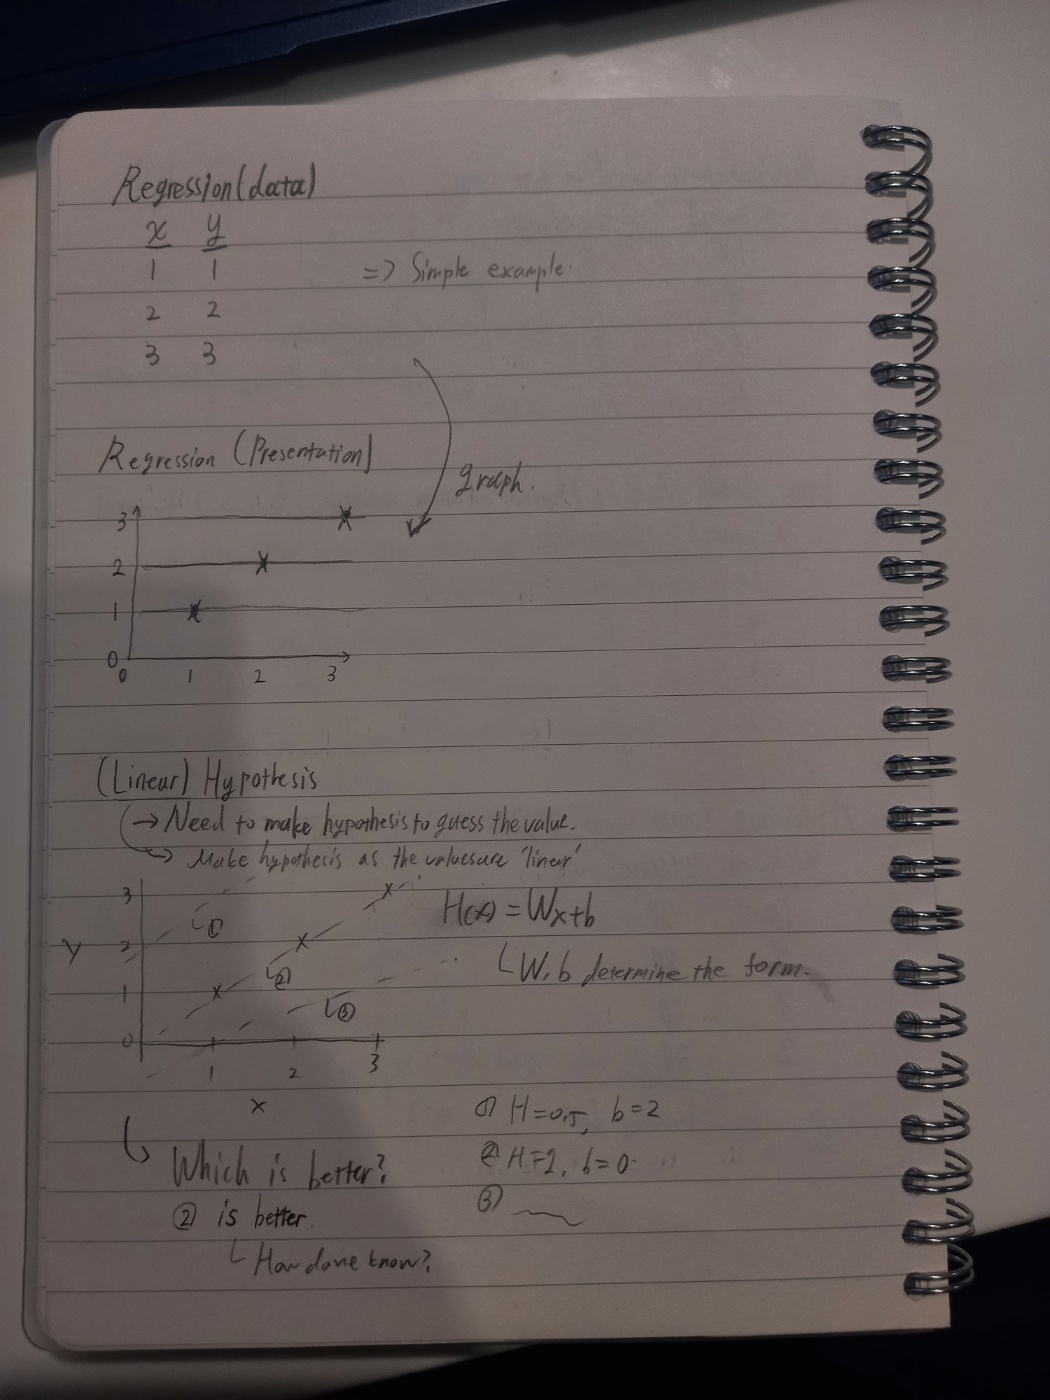 Regression (data)
x y
1 1
=> Simple example.
2 2
3 3
Regression (Presentation)
graph.
3
2
1
0
0 1 2 3
(Linear) Hypothesis
→ Need to make hypothesis to guess the value.
→ Make hypothesis as the values are 'linear'
3
①
H(x) = Wx+b
Y 2
②
W, b determine the form.
1
③
0
1 2 3
x
① H=0.5, b=2
Which is better?
② b=0.
② is better.
③
How do we know?